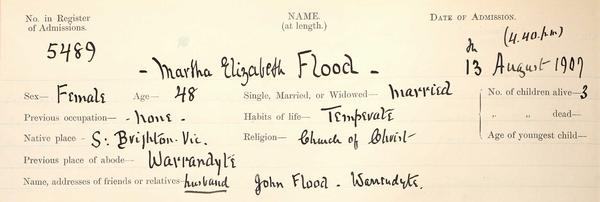 No. in Register of Admissions.
NAME. (at length.)
DATE OF ADMISSION.
5489
- Martha Elizabeth Flood -
(4.40.p.m)
13 August 1907
Sex— Female Age— 48 Single, Married, or Widowed— Married No. of children alive— 3
Previous occupation— - None. - Habits of life— Temperate „ „ dead—
Native place - S. Brighton. Vic. Religion— Church of Christ Age of youngest child—
Previous place of abode— Warrandyte
Name, addresses of friends or relatives- husband John Flood - Warrandyte.